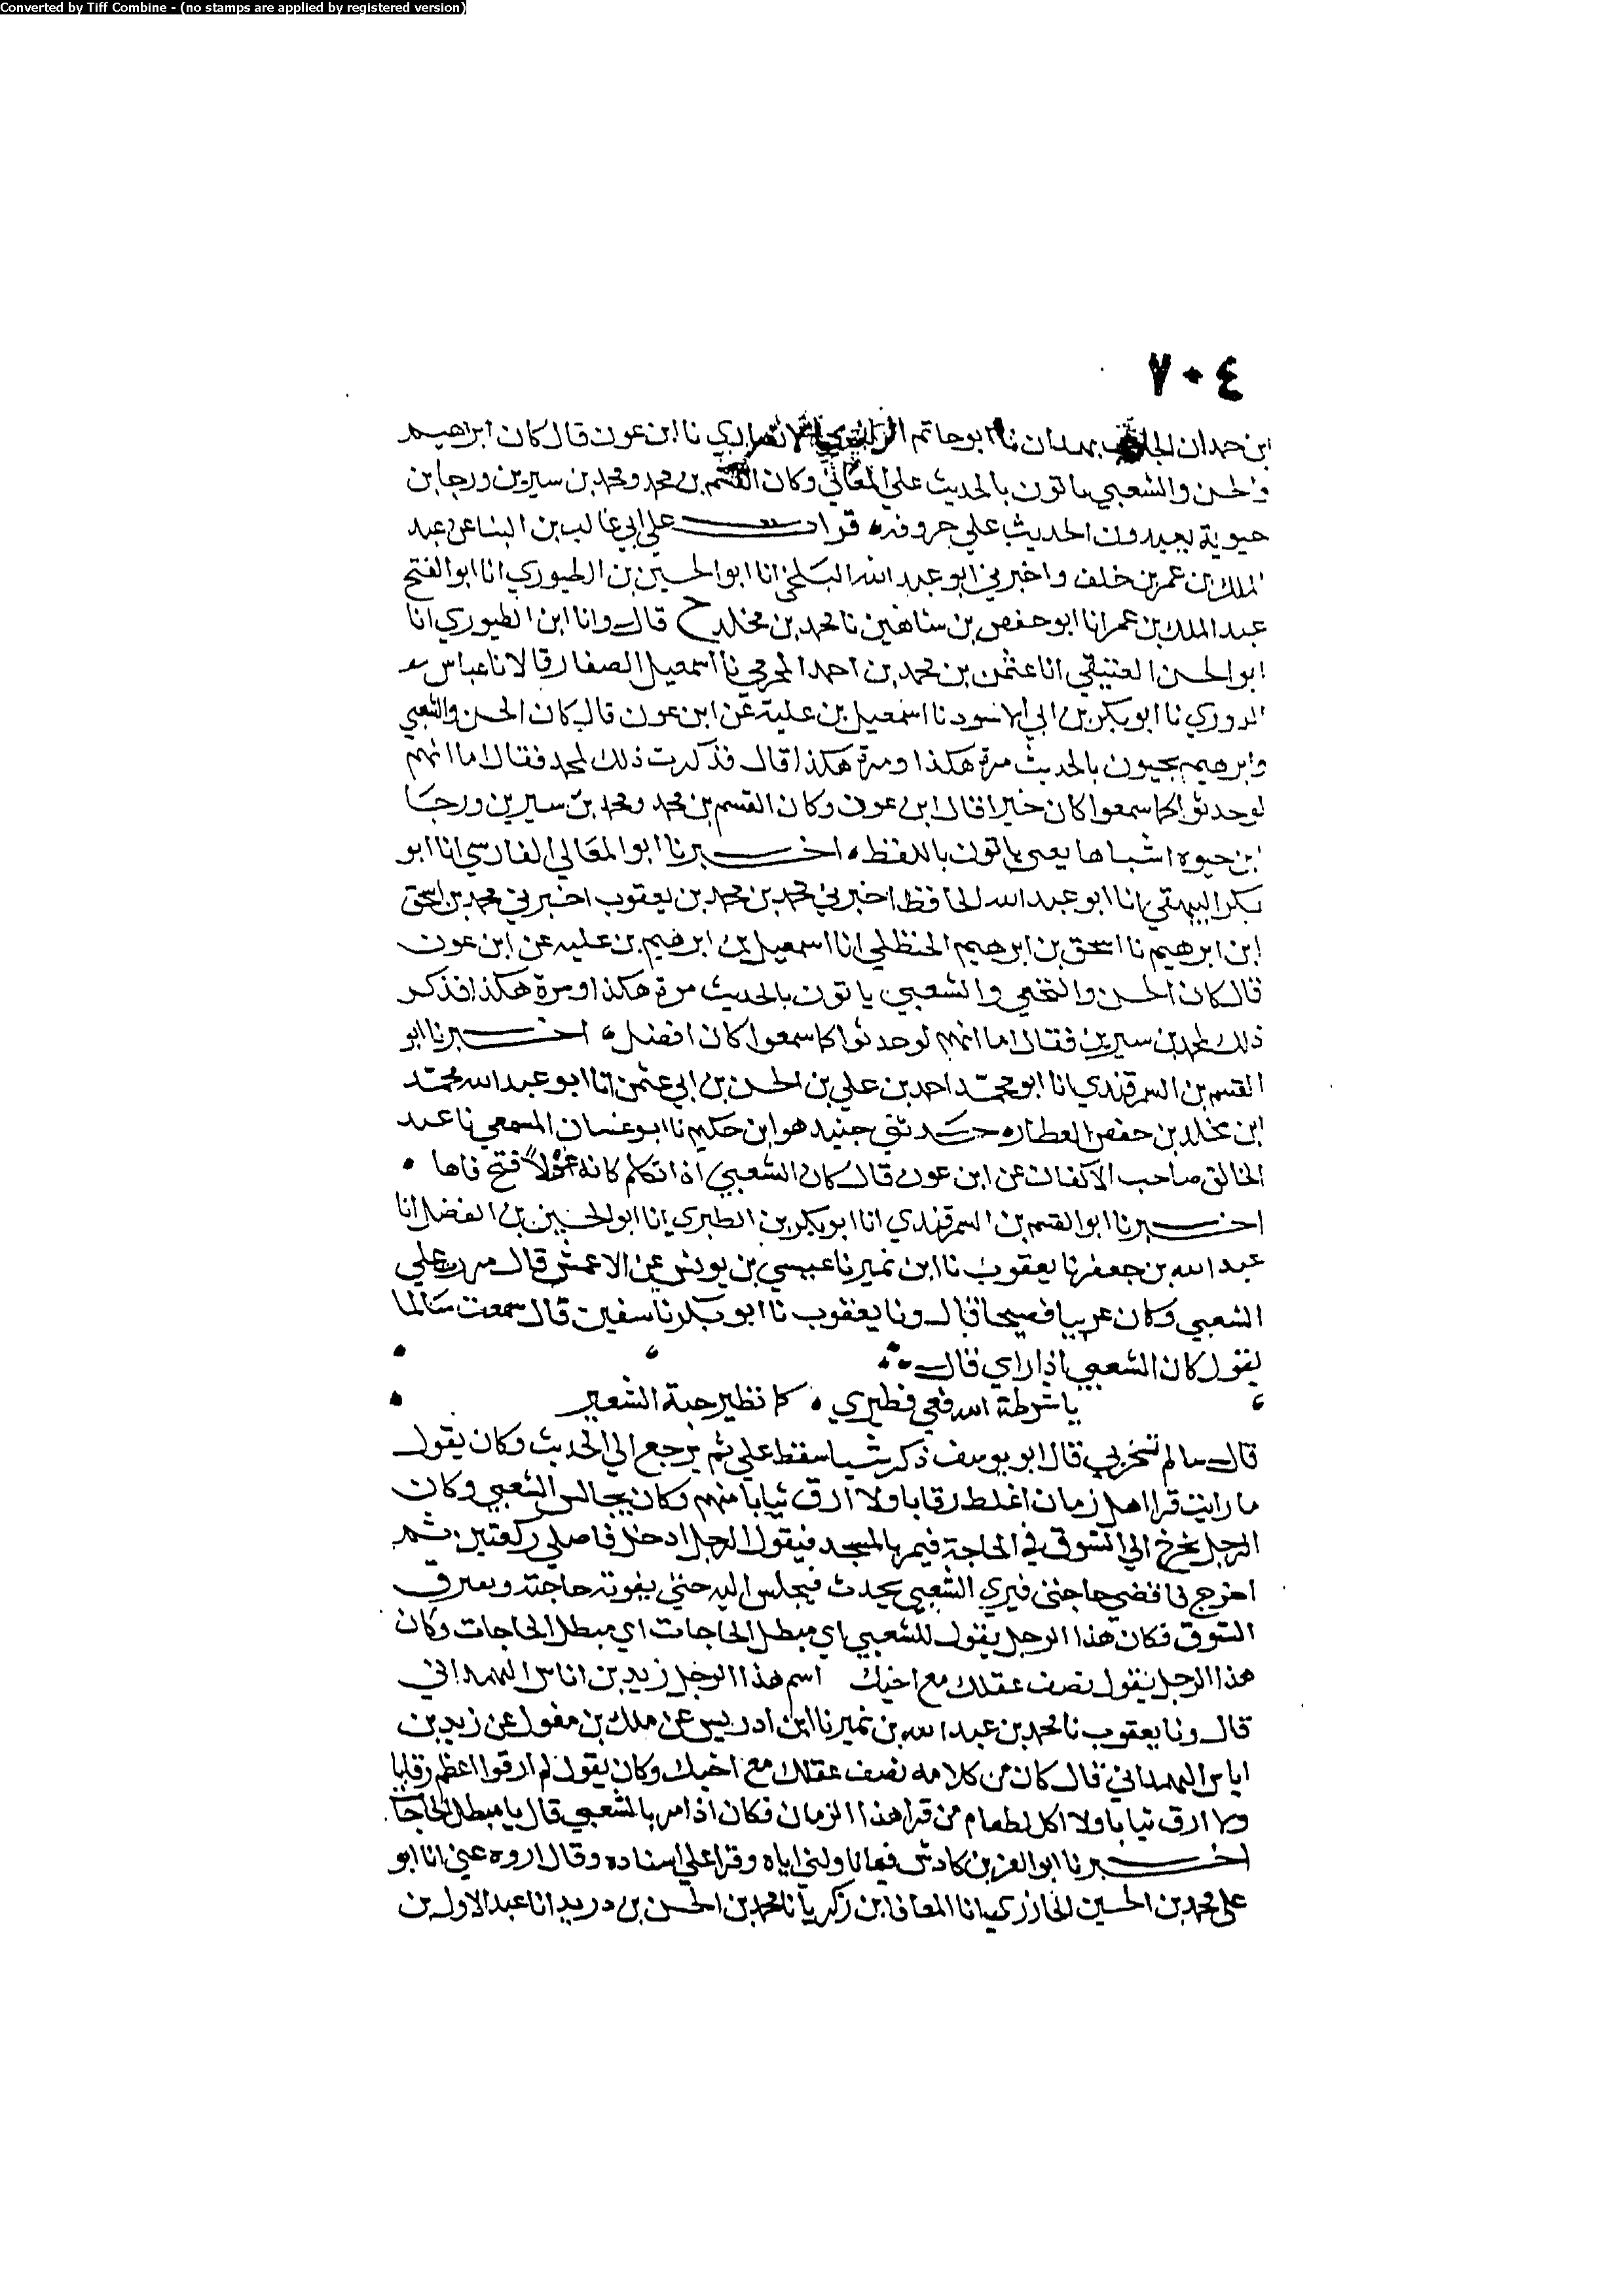 Converted by Tiff Combine - (no stamps are applied by registered version)
٧٠٤
ابن حمدان بهمدان نا ابو حاتم الانصاري نا ابن عون قال كان ابراهيم
والحسن والشعبي ياتون بالحديث علي المعاني وكان القسم بن محمد ومحمد بن سيرين ورجا بن
حيوية يعيدون الحديث علي حروفه قرات علي ابي غالب بن البنا عن عبد
الملك بن عمر بن خلف واخبرني ابو عبد الله البلخي انا ابو الحسين بن الطيوري انا ابو الفتح
عبد الملك بن عمر انا ابو حفص بن شاهين نا محمد بن مخلد ح قال وانا ابن الطيوري انا
ابو الحسن العتيقي انا عثمن بن محمد بن احمد المخرمي نا اسمعيل الصفار قالا نا عباس
الدوري نا ابو بكر بن ابي الاسود نا اسمعيل بن علية عن ابن عون قال كان الحسن والشعبي
وابرهيم يجيون بالحديث مرة هكذا ومرة هكذا قال فذكرت ذلك لمحمد فقال اما انهم
لو حدثوا كما سمعوا كان خيرا قال ابن عون وكان القسم بن محمد ومحمد بن سيرين ورجا
ابن حيوه اشباها يعني ياتون باللفظ اخبرنا ابو المعالي الفارسي انا ابو
بكر البيهقي انا ابو عبد الله الحافظ اخبرني محمد بن محمد بن يعقوب اخبرني محمد بن اسحق
ابن ابرهيم نا اسحق بن ابرهيم الحنظلي انا اسمعيل بن ابرهيم بن عليه عن ابن عون
قال كان الحسن والنخعي والشعبي ياتون بالحديث مرة هكذا ومرة هكذا فذكر
ذلك لمحمد بن سيرين فقال اما انهم لو حدثوا كما سمعوا كان افضل اخبرنا ابو
القسم بن السمرقندي انا ابو محمد احمد بن علي بن الحسن بن ابي عثمن انا ابو عبد الله محمد
ابن مخلد بن حفص العطار حدثني جنيد هو ابن حكيم نا ابو غسان المسمعي نا عبد
الخالق صاحب الاكفان عن ابن عون قال كان الشعبي اذا تكلم كانه فتح فاها
اخبرنا ابو القسم بن السمرقندي انا ابو بكر بن الطبري انا ابو الحسين بن الفضل انا
عبد الله بن جعفر نا يعقوب نا ابن نمير نا عيسي بن يونس عن الاعمش قال مررت علي
الشعبي وكان عربيا فصيحا قال ونا يعقوب نا ابو بكر نا سفين قال سمعت سالما
يقول كان الشعبي اذا راي قال
يا شرطة الله قعي فطيري كما تطير حبة الشعير
قال سالم تسخر بي قال ابو يوسف ذكر شيا سقط علي ثم يرجع الي الحديث وكان يقول
ما رايت قرا اهل زمان اغلط رقابا ولا ارق ثيابا منهم وكان يجالس الشعبي وكان
الرجل يخرج الي السوق في الحاجة فيمر بالمسجد فيقول الرجل ادخل فاصلي ركعتين ثم
اخرج فاقضي حاجتي فيري الشعبي يحدث فيجلس اليه حتي يفوته حاجته ويعترف
السوق فكان هذا الرجل يقول للشعبي اي مبطل الحاجات اي مبطل الحاجات وكان
هذا الرجل يقول نصف عقلك مع اخيك اسم هذا الرجل زيد بن اناس الهمداني
قال ونا يعقوب نا محمد بن عبد الله بن نمير نا ابن ادريس عن ملك بن مغول عن زيد بن
اياس الهمداني قال كان من كلامه نصف عقلك مع اخيك وكان يقول لم ار قوما اعظم رقابا
ولا ارق ثيابا ولا اكل لطعام من قرا هذا الزمان فكان اذا مر بالشعبي قال يا مبطل الحاجات
اخبرنا ابو العز بن كادش فيما ناولني اياه وقرا علي اسناده وقال اروه عني انا ابو
علي محمد بن الحسين الجازري انا المعافا بن زكريا نا محمد بن الحسن بن دريد انا عبد الاول بن